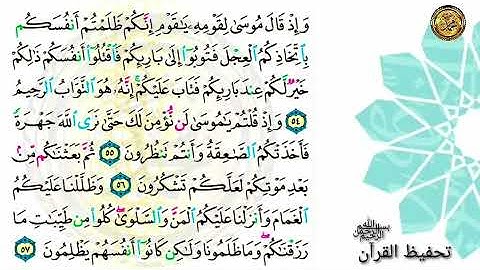 وَإِذْ قَالَ مُوسَىٰ لِقَوْمِهِۦ يَٰقَوْمِ إِنَّكُمْ ظَلَمْتُمْ أَنفُسَكُم
بِٱتِّخَاذِكُمُ ٱلْعِجْلَ فَتُوبُوٓا۟ إِلَىٰ بَارِئِكُمْ فَٱقْتُلُوٓا۟ أَنفُسَكُمْ ذَٰلِكُمْ
خَيْرٌ لَّكُمْ عِندَ بَارِئِكُمْ فَتَابَ عَلَيْكُمْ ۚ إِنَّهُۥ هُوَ ٱلتَّوَّابُ ٱلرَّحِيمُ
٥٤ وَإِذْ قُلْتُمْ يَٰمُوسَىٰ لَن نُّؤْمِنَ لَكَ حَتَّىٰ نَرَى ٱللَّهَ جَهْرَةً
فَأَخَذَتْكُمُ ٱلصَّٰعِقَةُ وَأَنتُمْ تَنظُرُونَ ٥٥ ثُمَّ بَعَثْنَٰكُم مِّنۢ
بَعْدِ مَوْتِكُمْ لَعَلَّكُمْ تَشْكُرُونَ ٥٦ وَظَلَّلْنَا عَلَيْكُمُ
ٱلْغَمَامَ وَأَنزَلْنَا عَلَيْكُمُ ٱلْمَنَّ وَٱلسَّلْوَىٰ ۖ كُلُوا۟ مِن طَيِّبَٰتِ مَا
رَزَقْنَٰكُمْ ۖ وَمَا ظَلَمُونَا وَلَٰكِن كَانُوٓا۟ أَنفُسَهُمْ يَظْلِمُونَ ٥٧
بسم الله الرحمن الرحيم
تحفيظ القرآن